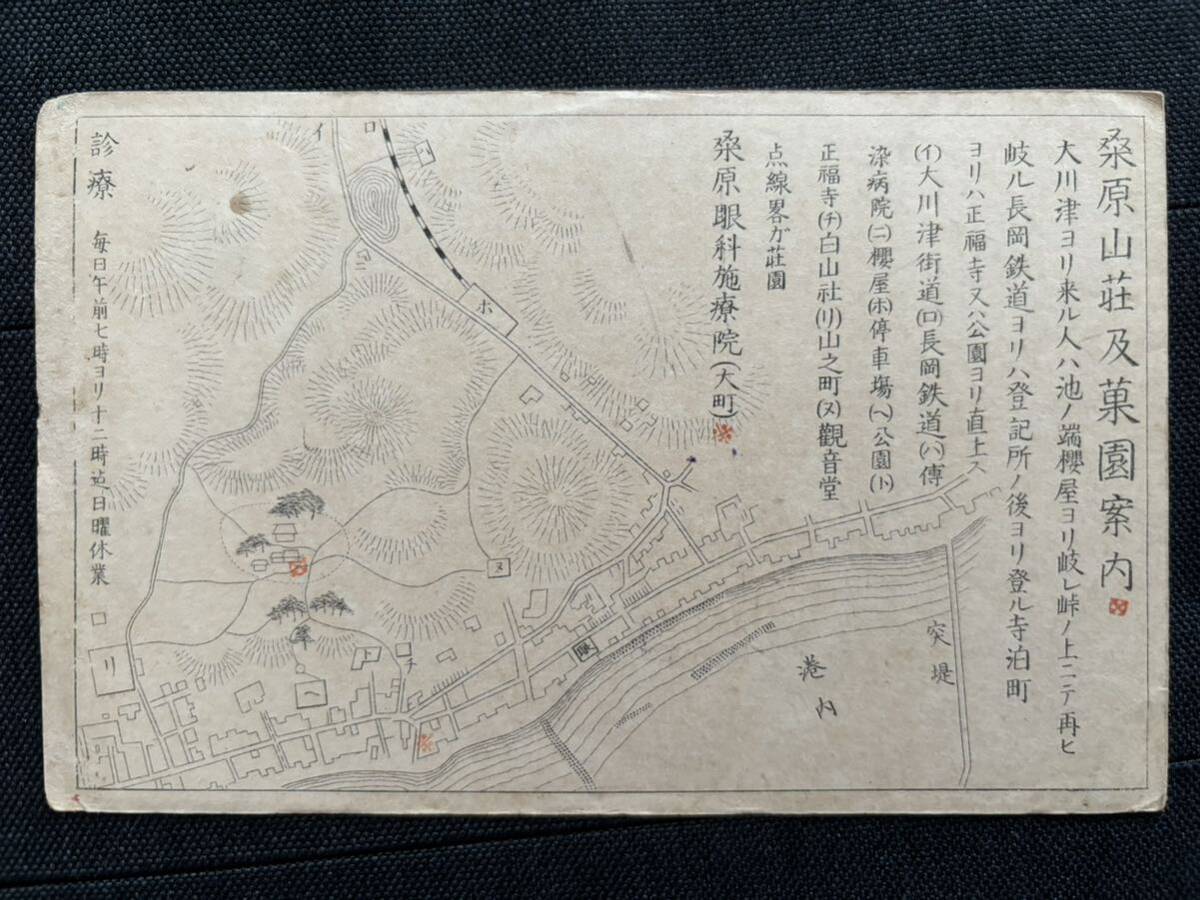 桑原山荘及菓園案内
大川津ヨリ来ル人ハ池ノ端櫻屋ヨリ岐レ峠ノ上ニテ再ヒ
岐ル長岡鉄道ヨリハ登記所ノ後ヨリ登ル寺泊町
ヨリハ正福寺又ハ公園ヨリ直上ス
(イ)大川津街道(ロ)長岡鉄道(ハ)傳
染病院(ニ)櫻屋(ホ)停車塲(ヘ)公園(ト)
正福寺(チ)白山社(リ)山之町(ヌ)觀音堂
点線畧ガ荘園
桑原眼科施療院(大町)
診療 毎日午前七時ヨリ十二時迠日曜休業
イ
ロ
ハ
ニ
ホ
ヌ
リ
ヘ
ト
チ
眼
港内
突堤